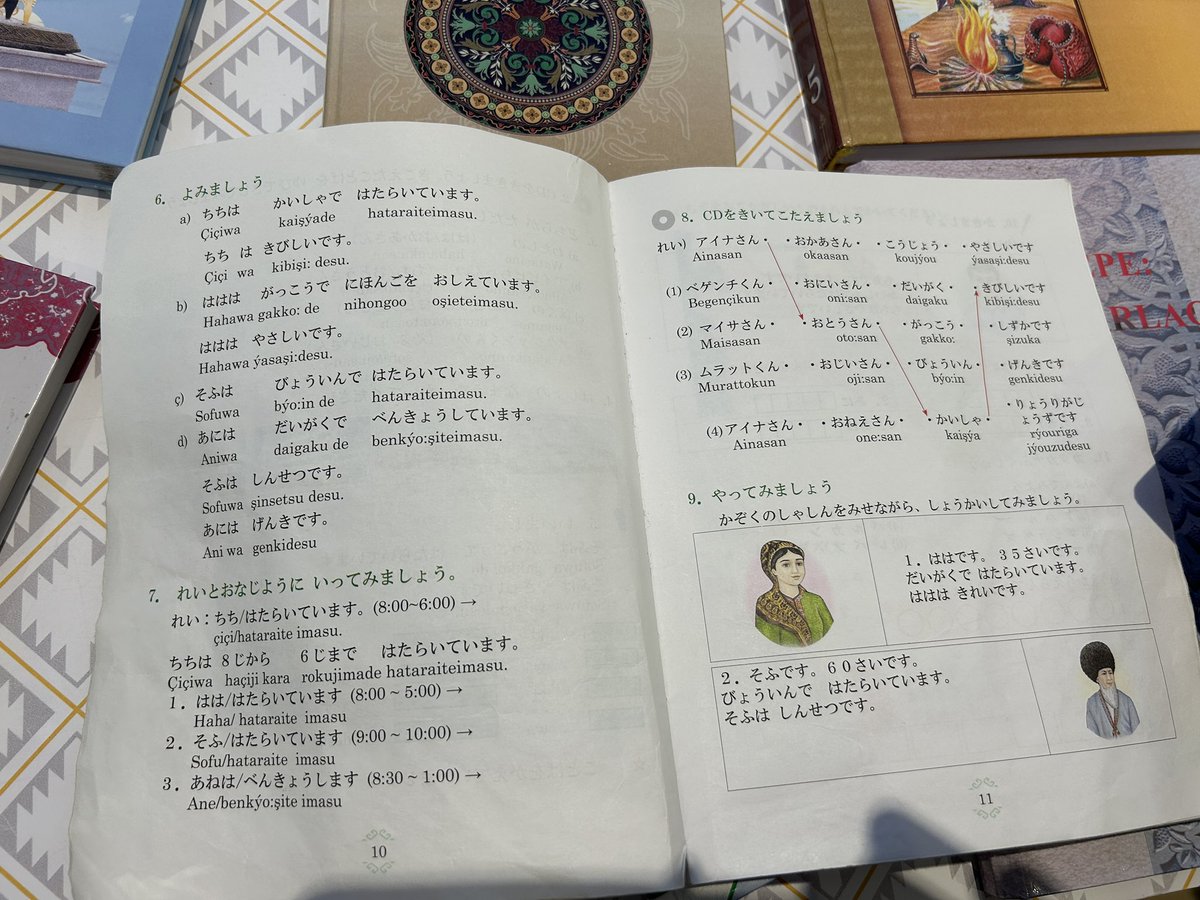 5
YPE:
RLAG
6. よみましょう
a) ちちは かいしゃで はたらいています。
Çiçiwa kaişýade hataraiteimasu.
ちち は きびしいです。
Çiçi wa kibişi: desu.
b) ははは がっこうで にほんごを おしえています。
Hahawa gakko: de nihongoo oşieteimasu.
ははは やさしいです。
Hahawa ýasaşi:desu.
ç) そふは びょういんで はたらいています。
Sofuwa býo:in de hataraiteimasu.
d) あには だいがくで べんきょうしています。
Aniwa daigaku de benkýo:şiteimasu.
そふは しんせつです。
Sofuwa şinsetsu desu.
あには げんきです。
Ani wa genkidesu
7. れいとおなじように いってみましょう。
れい：ちち/はたらいています。(8:00~6:00) →
çiçi/hataraite imasu.
ちちは 8じから 6じまで はたらいています。
Çiçiwa haçiji kara rokujimade hataraiteimasu.
1. はは/はたらいています (8:00 ~ 5:00) →
Haha/ hataraite imasu
2. そふ/はたらいています (9:00 ~ 10:00) →
Sofu/hataraite imasu
3. あねは/べんきょうします (8:30 ~ 1:00) →
Ane/benkýo:şite imasu
10
8. CDをきいてこたえましょう
れい) アイナさん・ ・おかあさん・ ・こうじょう・ ・やさしいです
Ainasan okaasan koujýou ýasaşi:desu
(1) ベゲンチくん・ ・おにいさん・ ・だいがく・ ・きびしいです
Begençikun oni:san daigaku kibişi:desu
(2) マイサさん・ ・おとうさん・ ・がっこう・ ・しずかです
Maisasan oto:san gakko: şizuka
(3) ムラットくん・ ・おじいさん・ ・びょういん・ ・げんきです
Murattokun oji:san býo:in genkidesu
(4)アイナさん・ ・おねえさん・ ・かいしゃ・ ・りょうりがじょうずです
Ainasan one:san kaişýa rýouriga jýouzudesu
9. やってみましょう
かぞくのしゃしんをみせながら、しょうかいしてみましょう。
1. ははです。35さいです。
だいがくで はたらいています。
ははは きれいです。
2. そふです。60さいです。
びょういんで はたらいています。
そふは しんせつです。
11